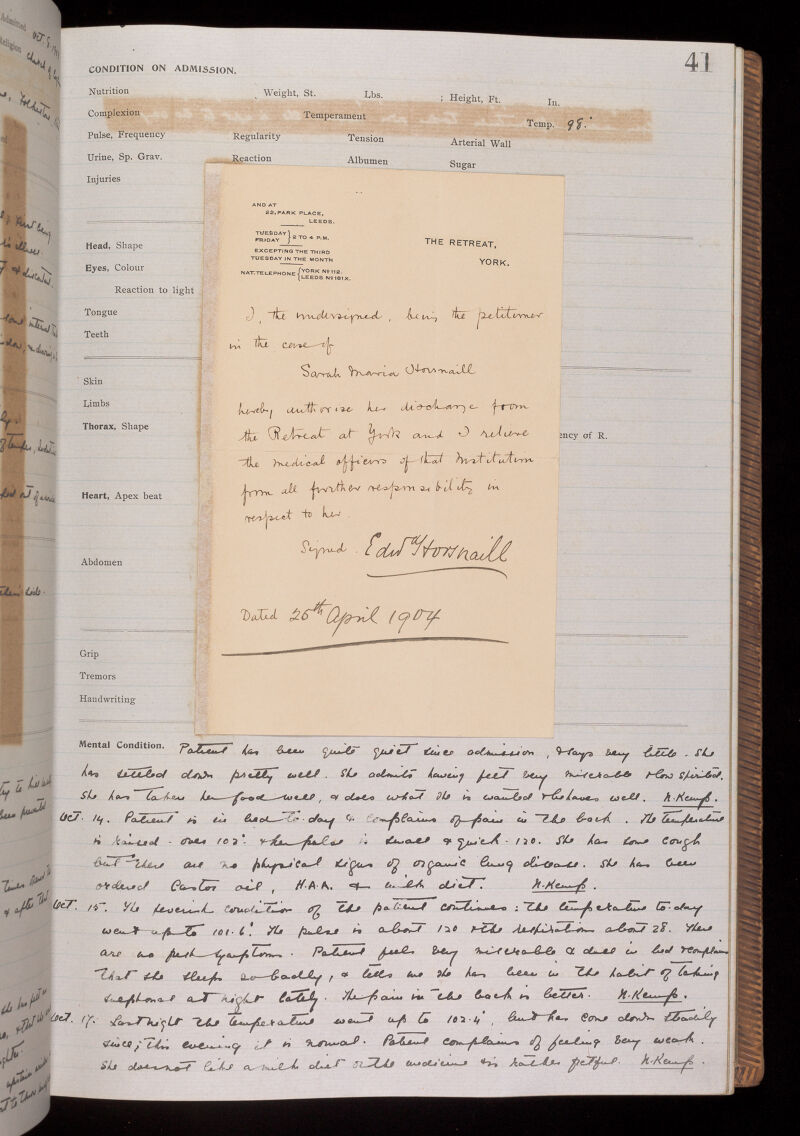 41
CONDITION ON ADMISSION.
Nutrition Weight, St. Lbs. ; Height, Ft. In.
Complexion Temperament Temp. 98°
Pulse, Frequency Regularity Tension Arterial Wall
Urine, Sp. Grav. Reaction Albumen Sugar
Injuries
Head, Shape
Eyes, Colour
Reaction to light
Tongue
Teeth
Skin
Limbs
Thorax, Shape ency of R.
Heart, Apex beat
Abdomen
Grip
Tremors
Handwriting
AND AT
22, PARK PLACE,
LEEDS.
TUESDAY } 2 TO 4 P.M.
FRIDAY
EXCEPTING THE THIRD
TUESDAY IN THE MONTH
NAT. TELEPHONE { YORK Nº 112.
LEEDS Nº 181X.
THE RETREAT,
YORK.
I, the undersigned, being the petitioner
in the case of
Sarah Maria Horsnaill
hereby authorise her discharge from
the Retreat at York and I relieve
the medical officers of that Institution
from all further responsibility in
respect to her.
Signed. Edwd Horsnaill
Dated 25th April 1904
Mental Condition. Patient has been quite quiet since admission, & says very little. She
has settled down pretty well. She admits having felt very miserable & low spirited.
She has taken her food well, & does what she is wanted & behaves well. N. Kemp.
Oct. 14. Patient is in bed to-day & complains of pain in the back. The temperature
is raised - over 102°. & her pulse is small & quick - 120. She has some cough
but there are no physical signs of organic lung disease. She has been
ordered Castor oil, H.A.A. & milk diet. N. Kemp.
Oct. 15. The feverish condition of the patient continues: the temperature to-day
went up to 101.6°. The pulse is about 120 & the respirations about 28. There
are no fresh symptoms. Patient feels very miserable & dull in bed & complains
that she sleeps so badly, & tells me she has been in the habit of taking
sulphonal at night lately. The pain in the back is better. N. Kemp.
Oct. 17. Last night the temperature went up to 102.4°, but has come down steadily
since; this evening it is normal. Patient complains of feeling very weak.
She does not like a milk diet or the medicine & is rather fretful. N. Kemp.